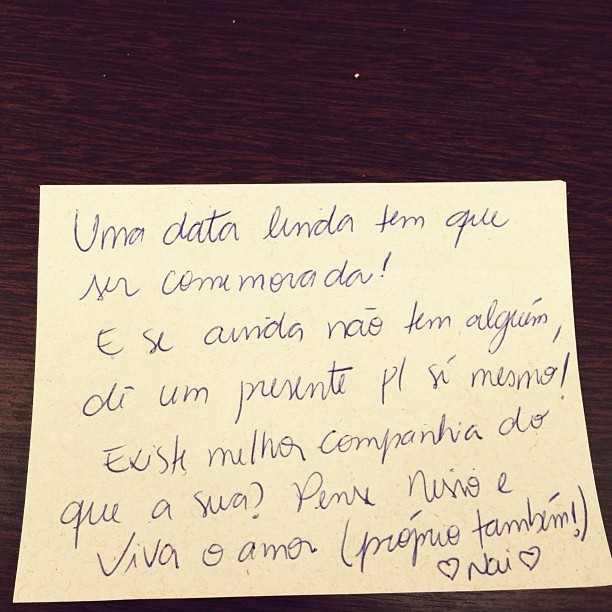 Uma data linda tem que
ser comemorada!
E se ainda não tem alguém,
dê um presente p/ sí mesmo!
Existe melhor companhia do
que a sua? Pense nisso e
Viva o amor (próprio também!)
♡ Nai ♡